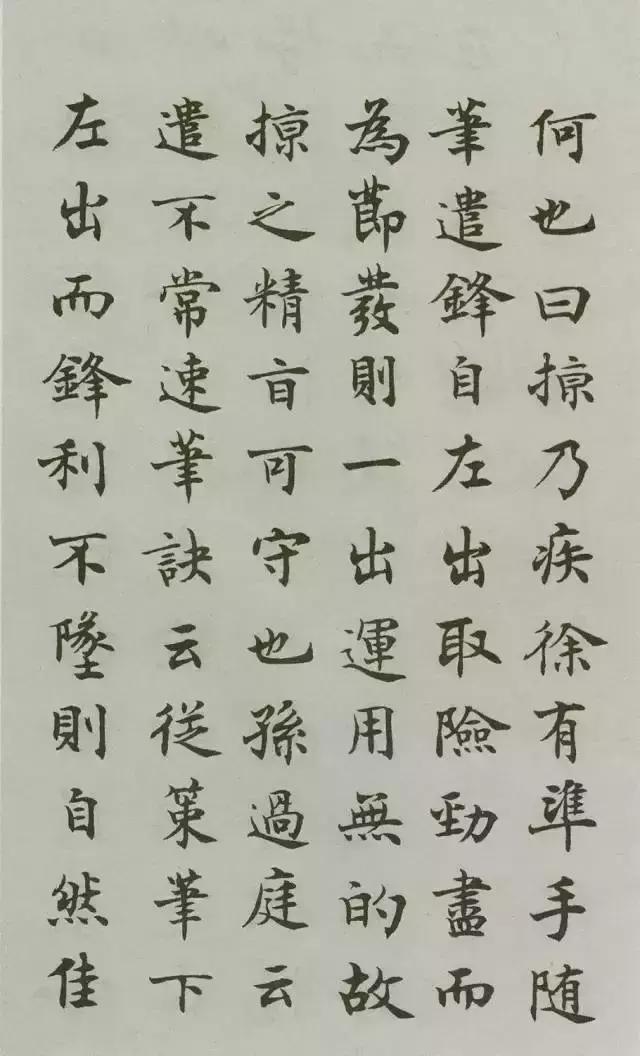 何也曰掠乃疾徐有準手随
筆遣鋒自左出取險勁盡而
為節發則一出運用無的故
掠之精旨可守也孫過庭云
遣不常速筆訣云從策筆下
左出而鋒利不墜則自然佳